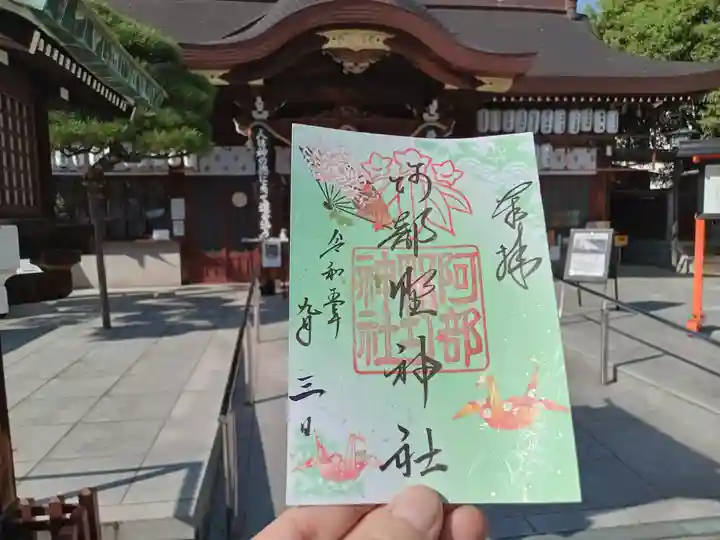 奉拝
阿部野神社
阿部野神社
令和五年
九月
三日